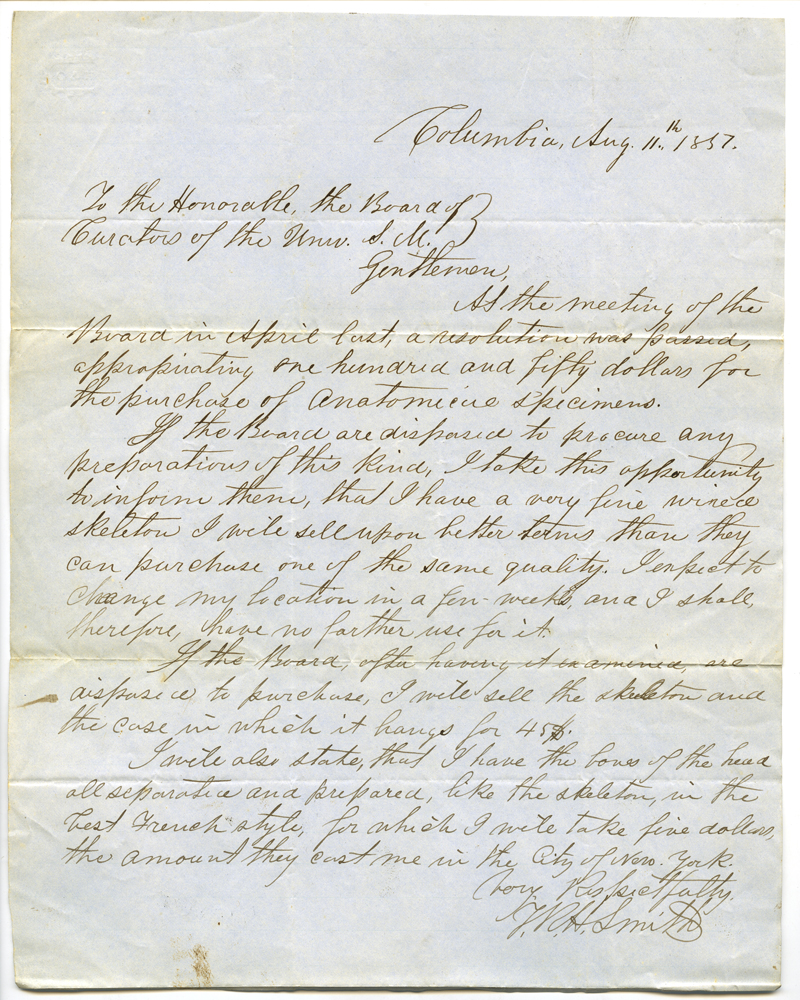 Columbia, Aug. 11th, 1857.
To the Honorable, the Board of
Curators of the Univ. S. M.
Gentlemen,
At the meeting of the
Board in April last, a resolution was passed,
appropriating one hundred and fifty dollars for
the purchase of Anatomical specimens.
If the Board are disposed to procure any
preparations of this kind, I take this opportunity
to inform them, that I have a very fine wired
skeleton I will sell upon better terms than they
can purchase one of the same quality. I expect to
change my location in a few weeks, and I shall,
therefore, have no farther use for it.
If the Board, after having it examined, are
disposed to purchase, I will sell the skeleton and
the case in which it hangs for 45$.
I will also state, that I have the bones of the head
all separated and prepared, like the skeleton, in the
best French style, for which I will take five dollars,
the amount they cost me in the City of New. York.
Very Respectfully.
Smith